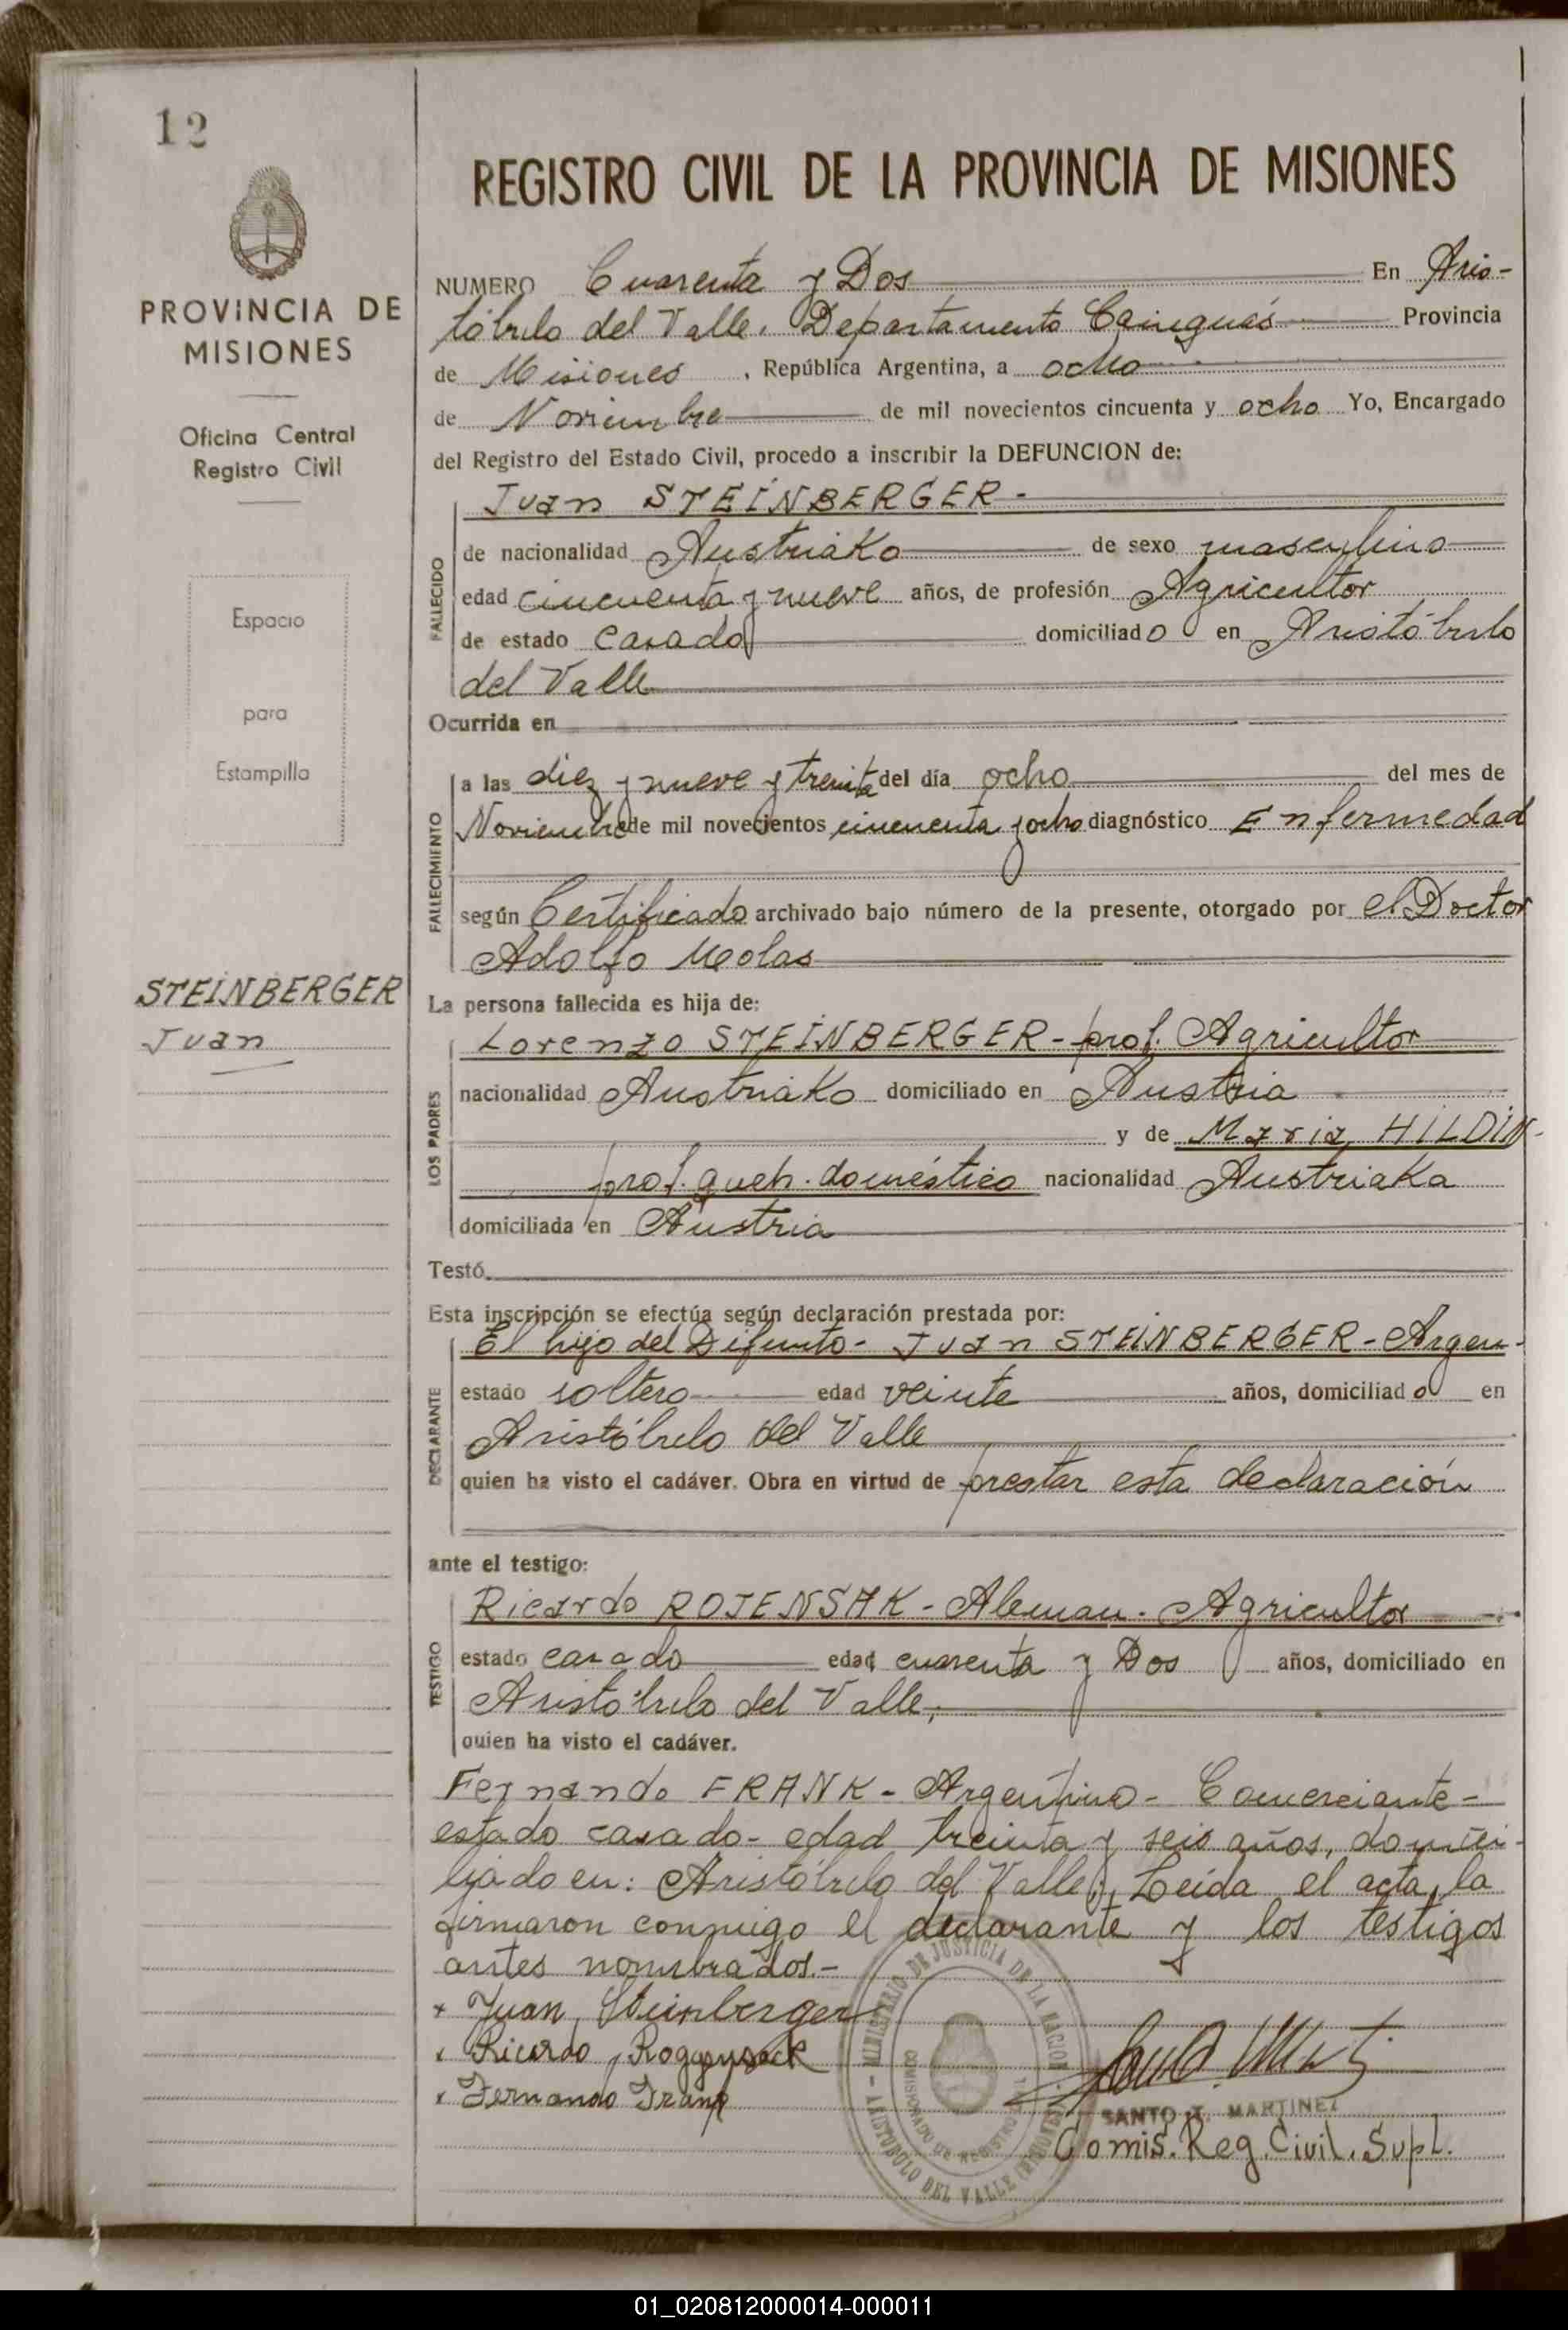 12
PROVINCIA DE
MISIONES
Oficina Central
Registro Civil
Espacio
para
Estampilla
STEINBERGER
Juan
REGISTRO CIVIL DE LA PROVINCIA DE MISIONES
NUMERO Cuarenta y Dos En Aris-
tóbulo del Valle, Departamento Cainguás Provincia
de Misiones, República Argentina, a ocho
de Noviembre de mil novecientos cincuenta y ocho Yo, Encargado
del Registro del Estado Civil, procedo a inscribir la DEFUNCION de:
Juan STEINBERGER-
FALLECIDO
de nacionalidad Austriako de sexo masculino
edad cincuenta y nueve años, de profesión Agricultor
de estado casado domiciliado en Aristóbulo
del Valle
Ocurrida en
FALLECIMIENTO
a las diez y nueve y treinta del día ocho del mes de
Noviembre de mil novecientos cincuenta y ocho diagnóstico Enfermedad
según Certificado archivado bajo número de la presente, otorgado por el Doctor
Adolfo Meolas
La persona fallecida es hija de:
LOS PADRES
Lorenzo STEINBERGER- prof. Agricultor
nacionalidad Austriako domiciliado en Austria
y de Maria HILDIN-
prof. queh. doméstico nacionalidad Austriaka
domiciliada en Austria
Testó.
Esta inscripción se efectúa según declaración prestada por:
DECLARANTE
El hijo del Difunto- Juan STEINBERGER- Argen-
estado soltero edad veinte años, domiciliado en
Aristóbulo del Valle
quien ha visto el cadáver. Obra en virtud de prestar esta declaración
ante el testigo:
TESTIGO
Ricardo ROJENSAK- Aleman. Agricultor
estado casado edad cuarenta y Dos años, domiciliado en
Aristóbulo del Valle;
quien ha visto el cadáver.
Fernando FRANK- Argentino- Comerciante-
estado casado- edad treinta y seis años, domici-
liado en: Aristóbulo del Valle;, Leída el acta, la
firmaron conmigo el declarante y los testigos
antes nombrados.-
x Juan Steinberger
x Ricardo
x Fernando Frank
MINISTERIO DE JUSTICIA DE LA NACION
ARISTOBULO DEL VALLE
SANTO T. MARTINEZ
Comis. Reg. Civil. Supl.
01_020812000014-000011